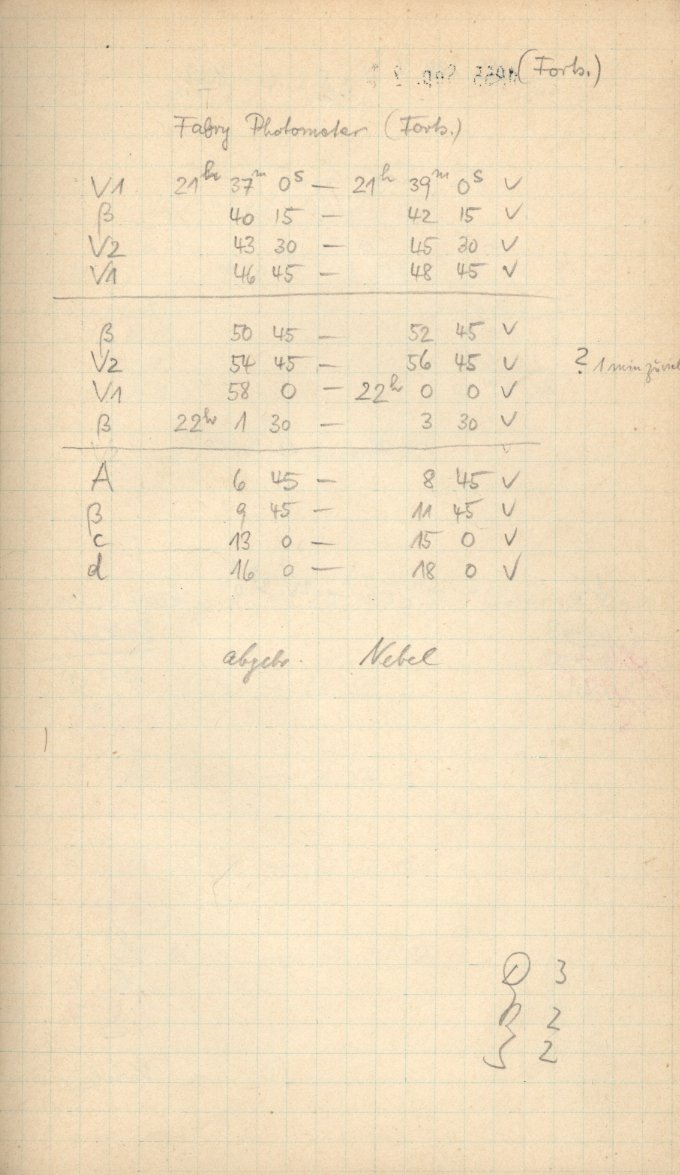 (Forts.)
Fabry Photometer (Forts.)
V1 21h 37m 0s — 21h 39m 0s v
β 40 15 — 42 15 v
V2 43 30 — 45 30 v
V1 46 45 — 48 45 v
β 50 45 — 52 45 v
V2 54 45 — 56 45 v ? 1 min zuviel
V1 58 0 — 22h 0 0 v
β 22h 1 30 — 3 30 v
A 6 45 — 8 45 v
β 9 45 — 11 45 v
c 13 0 — 15 0 v
d 16 0 — 18 0 v
abgebr. Nebel
3
2
2